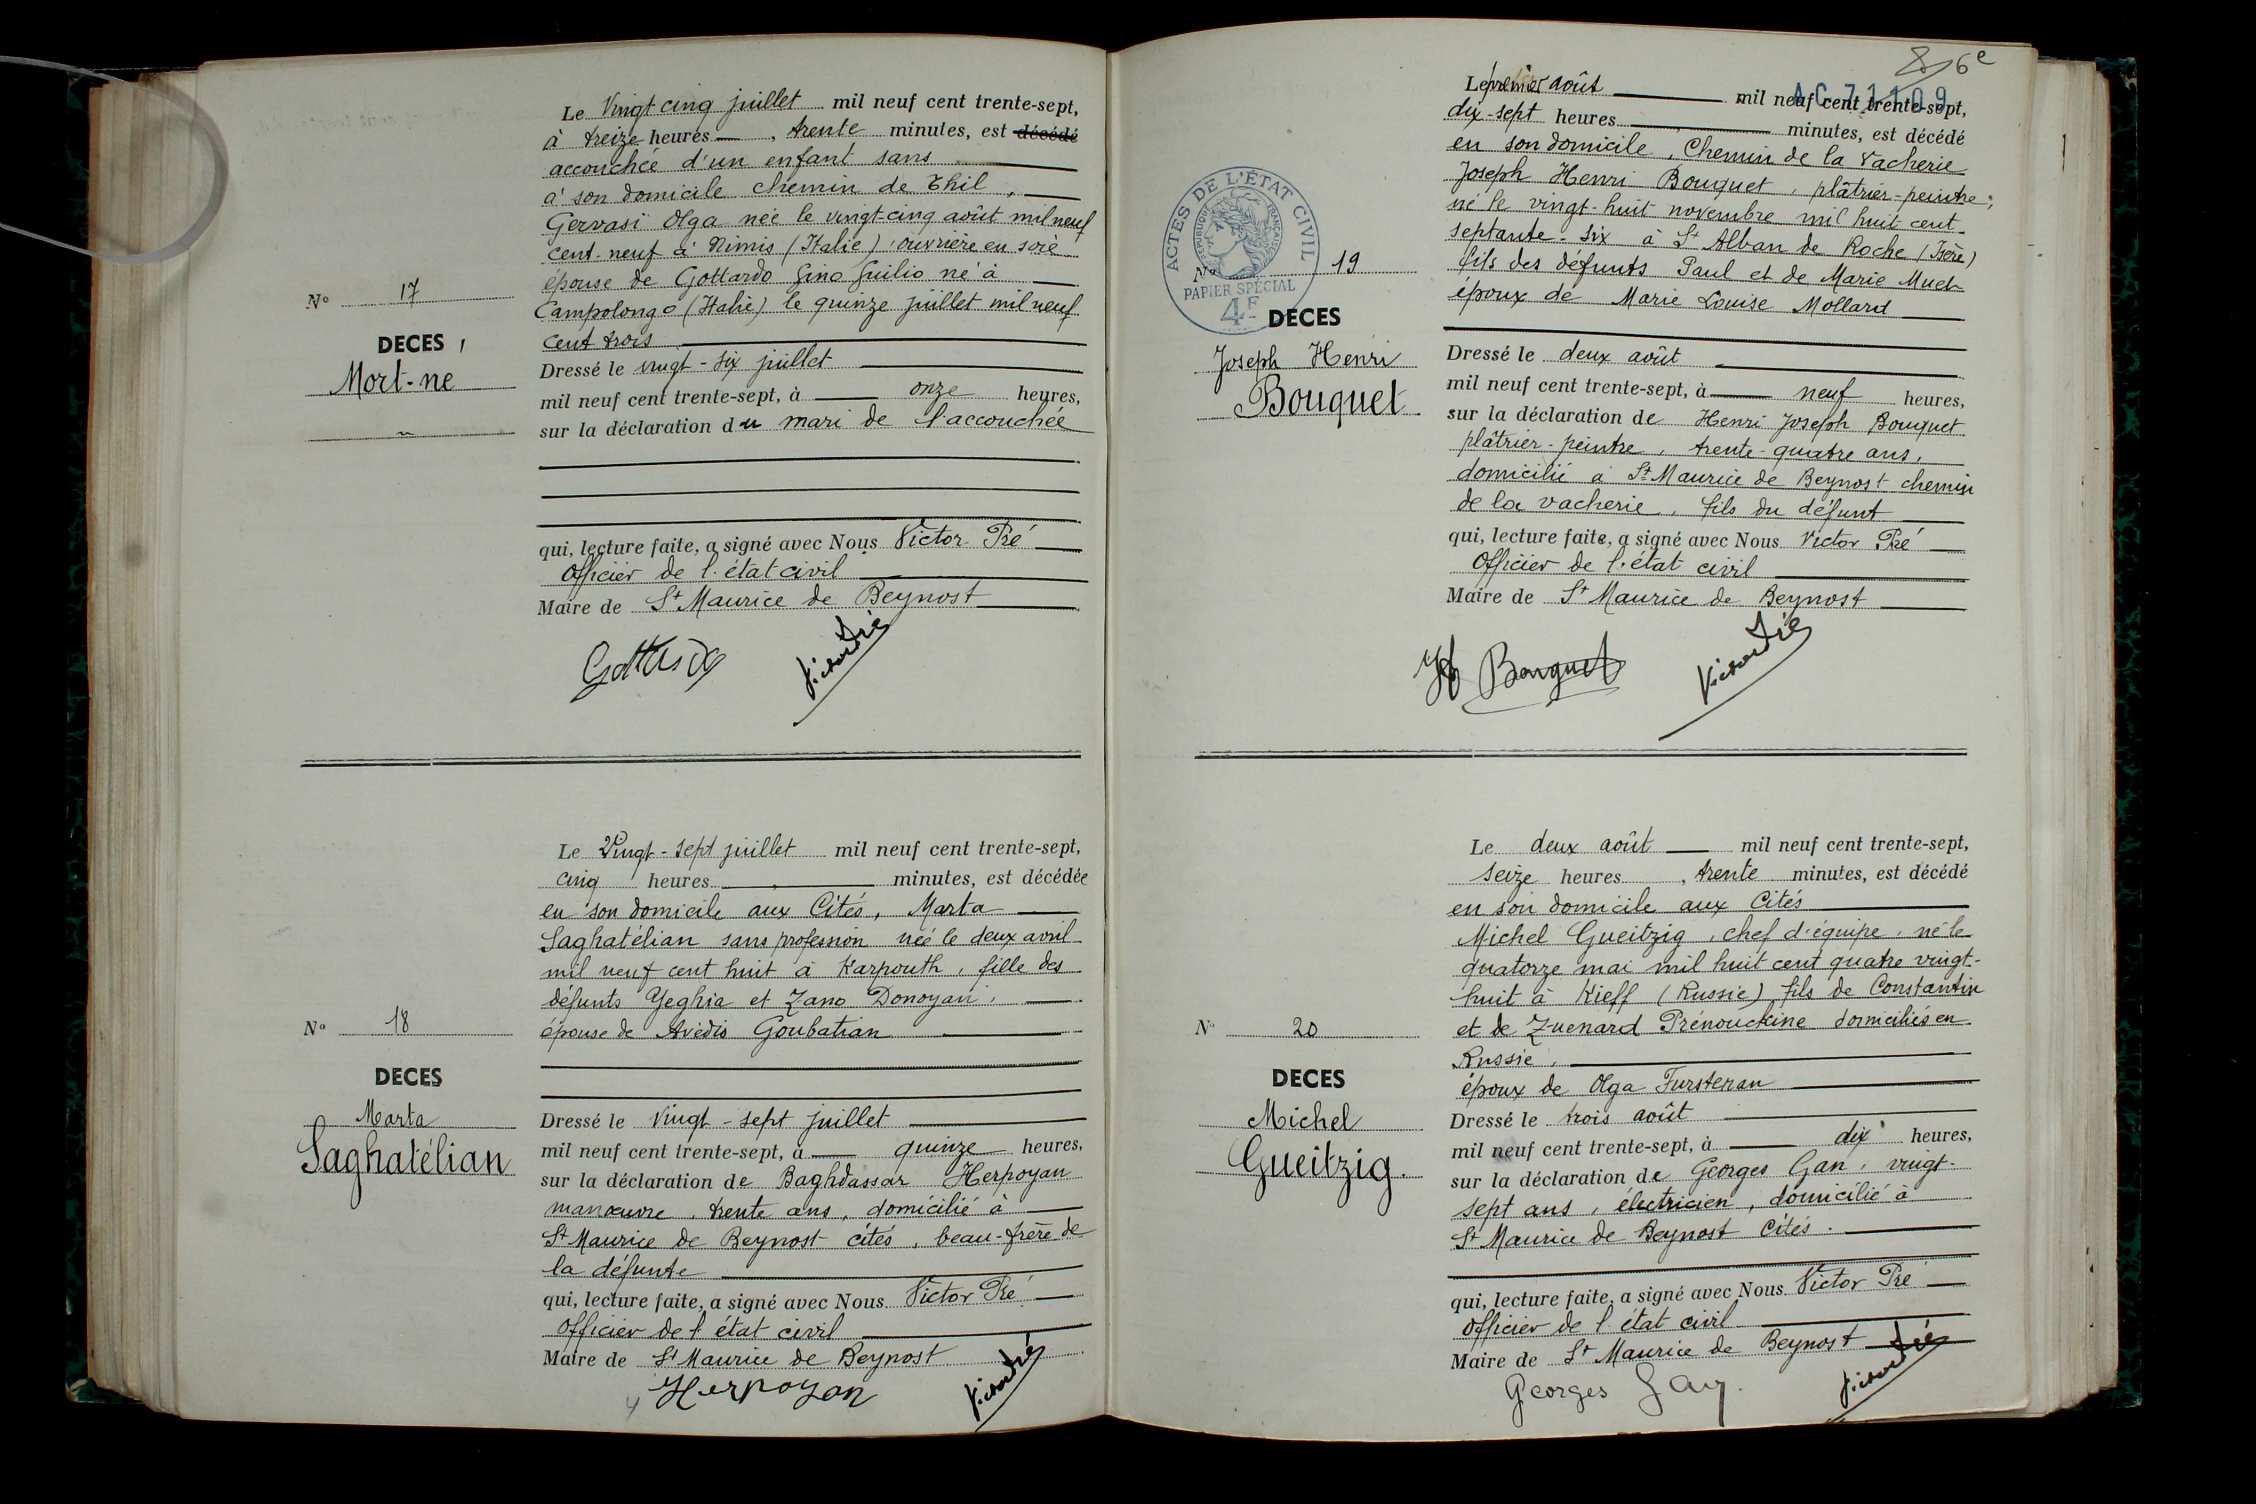 Le Vingt cinq juillet mil neuf cent trente-sept,
à treize heures, trente minutes, est décédé
accouchée d'un enfant sans
à son domicile chemin de Thil,
Gervasi Olga née le vingt cinq août mil neuf
cent neuf à Nimis (Italie), ouvrière en soie
épouse de Gottardo Gino Guilio né à
Campolongo (Italie) le quinze juillet mil neuf
cent trois
N° 17
DECES
Mort-né
Dressé le vingt-six juillet
mil neuf cent trente-sept, à onze heures,
sur la déclaration du mari de l'accouchée
qui, lecture faite, a signé avec Nous Victor Pré
Officier de l'état civil
Maire de St Maurice de Beynost
Gottardo Victor Pré
Le Vingt-sept juillet mil neuf cent trente-sept,
cinq heures, minutes, est décédée
en son domicile aux Cités, Marta
Saghatélian sans profession née le deux avril
mil neuf cent huit à Karpouth, fille des
défunts Yeghia et Zano Donoyan,
épouse de Avédis Goubatian
N° 18
DECES
Marta
Saghatélian
Dressé le Vingt-sept juillet
mil neuf cent trente-sept, à quinze heures,
sur la déclaration de Baghdassar Herpoyan
manœuvre, trente ans, domicilié à
St Maurice de Beynost cités, beau-frère de
la défunte
qui, lecture faite, a signé avec Nous Victor Pré
Officier de l'état civil
Maire de St Maurice de Beynost
Herpoyan Victor Pré
6e
AC 71109
Le premier août mil neuf cent trente-sept,
dix-sept heures minutes, est décédé
en son domicile, Chemin de la Vacherie
Joseph Henri Bouquet, plâtrier-peintre,
né le vingt-huit novembre mil huit cent
septante-six à St Alban de Roche (Isère)
fils des défunts Paul et de Marie Muet
époux de Marie Louise Mollard
ACTES DE L'ÉTAT CIVIL
RÉPUBLIQUE FRANÇAISE
PAPIER SPÉCIAL
4F
N° 19
DECES
Joseph Henri
Bouquet
Dressé le deux août
mil neuf cent trente-sept, à neuf heures,
sur la déclaration de Henri Joseph Bouquet
plâtrier-peintre, trente-quatre ans,
domicilié à St Maurice de Beynost chemin
de la vacherie, fils du défunt
qui, lecture faite, a signé avec Nous Victor Pré
Officier de l'état civil
Maire de St Maurice de Beynost
Bouquet Victor Pré
Le deux août mil neuf cent trente-sept,
seize heures, trente minutes, est décédé
en son domicile aux Cités
Michel Gueitzig, chef d'équipe, né le
quatorze mai mil huit cent quatre vingt-
huit à Kieff (Russie) fils de Constantin
et de Zuenard Prénouckine domiciliés en
Russie,
époux de Olga Fursteran
N° 20
DECES
Michel
Gueitzig.
Dressé le trois août
mil neuf cent trente-sept, à dix heures,
sur la déclaration de Georges Gan, vingt-
sept ans, électricien, domicilié à
St Maurice de Beynost Cités.
qui, lecture faite, a signé avec Nous Victor Pré
Officier de l'état civil
Maire de St Maurice de Beynost
Georges Gan. Victor Pré